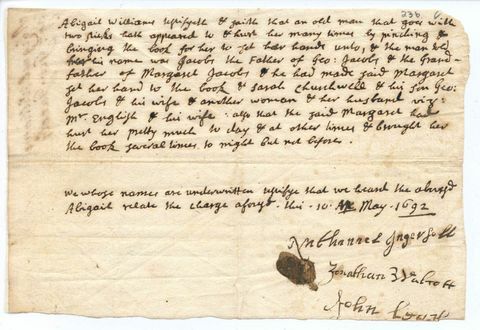 236
Abigail Williams testifyeth & saith that an old man that goes with
two sticks hath appeared to & hurt her many times by pinching &
bringing the book for her to set her hand unto, & the man told
her his name was Jacobs the Father of Geo: Jacobs & the Grand-
father of Margaret Jacobs & he had made said Margaret
set her hand to the book & Sarah Churchwell & his son Geo:
Jacobs & his wife & another woman & her husband viz:
Mr. English & his wife: also that the said Margaret had
hurt her pretty much to day & at other times & brought her
the book several times to night but not before.
we whose names are underwritten testifye that we heard the aboves'd
Abigail relate the charge afores'd this 10. May. 1692
Nathanael Ingersoll
Jonathan Walcott
John